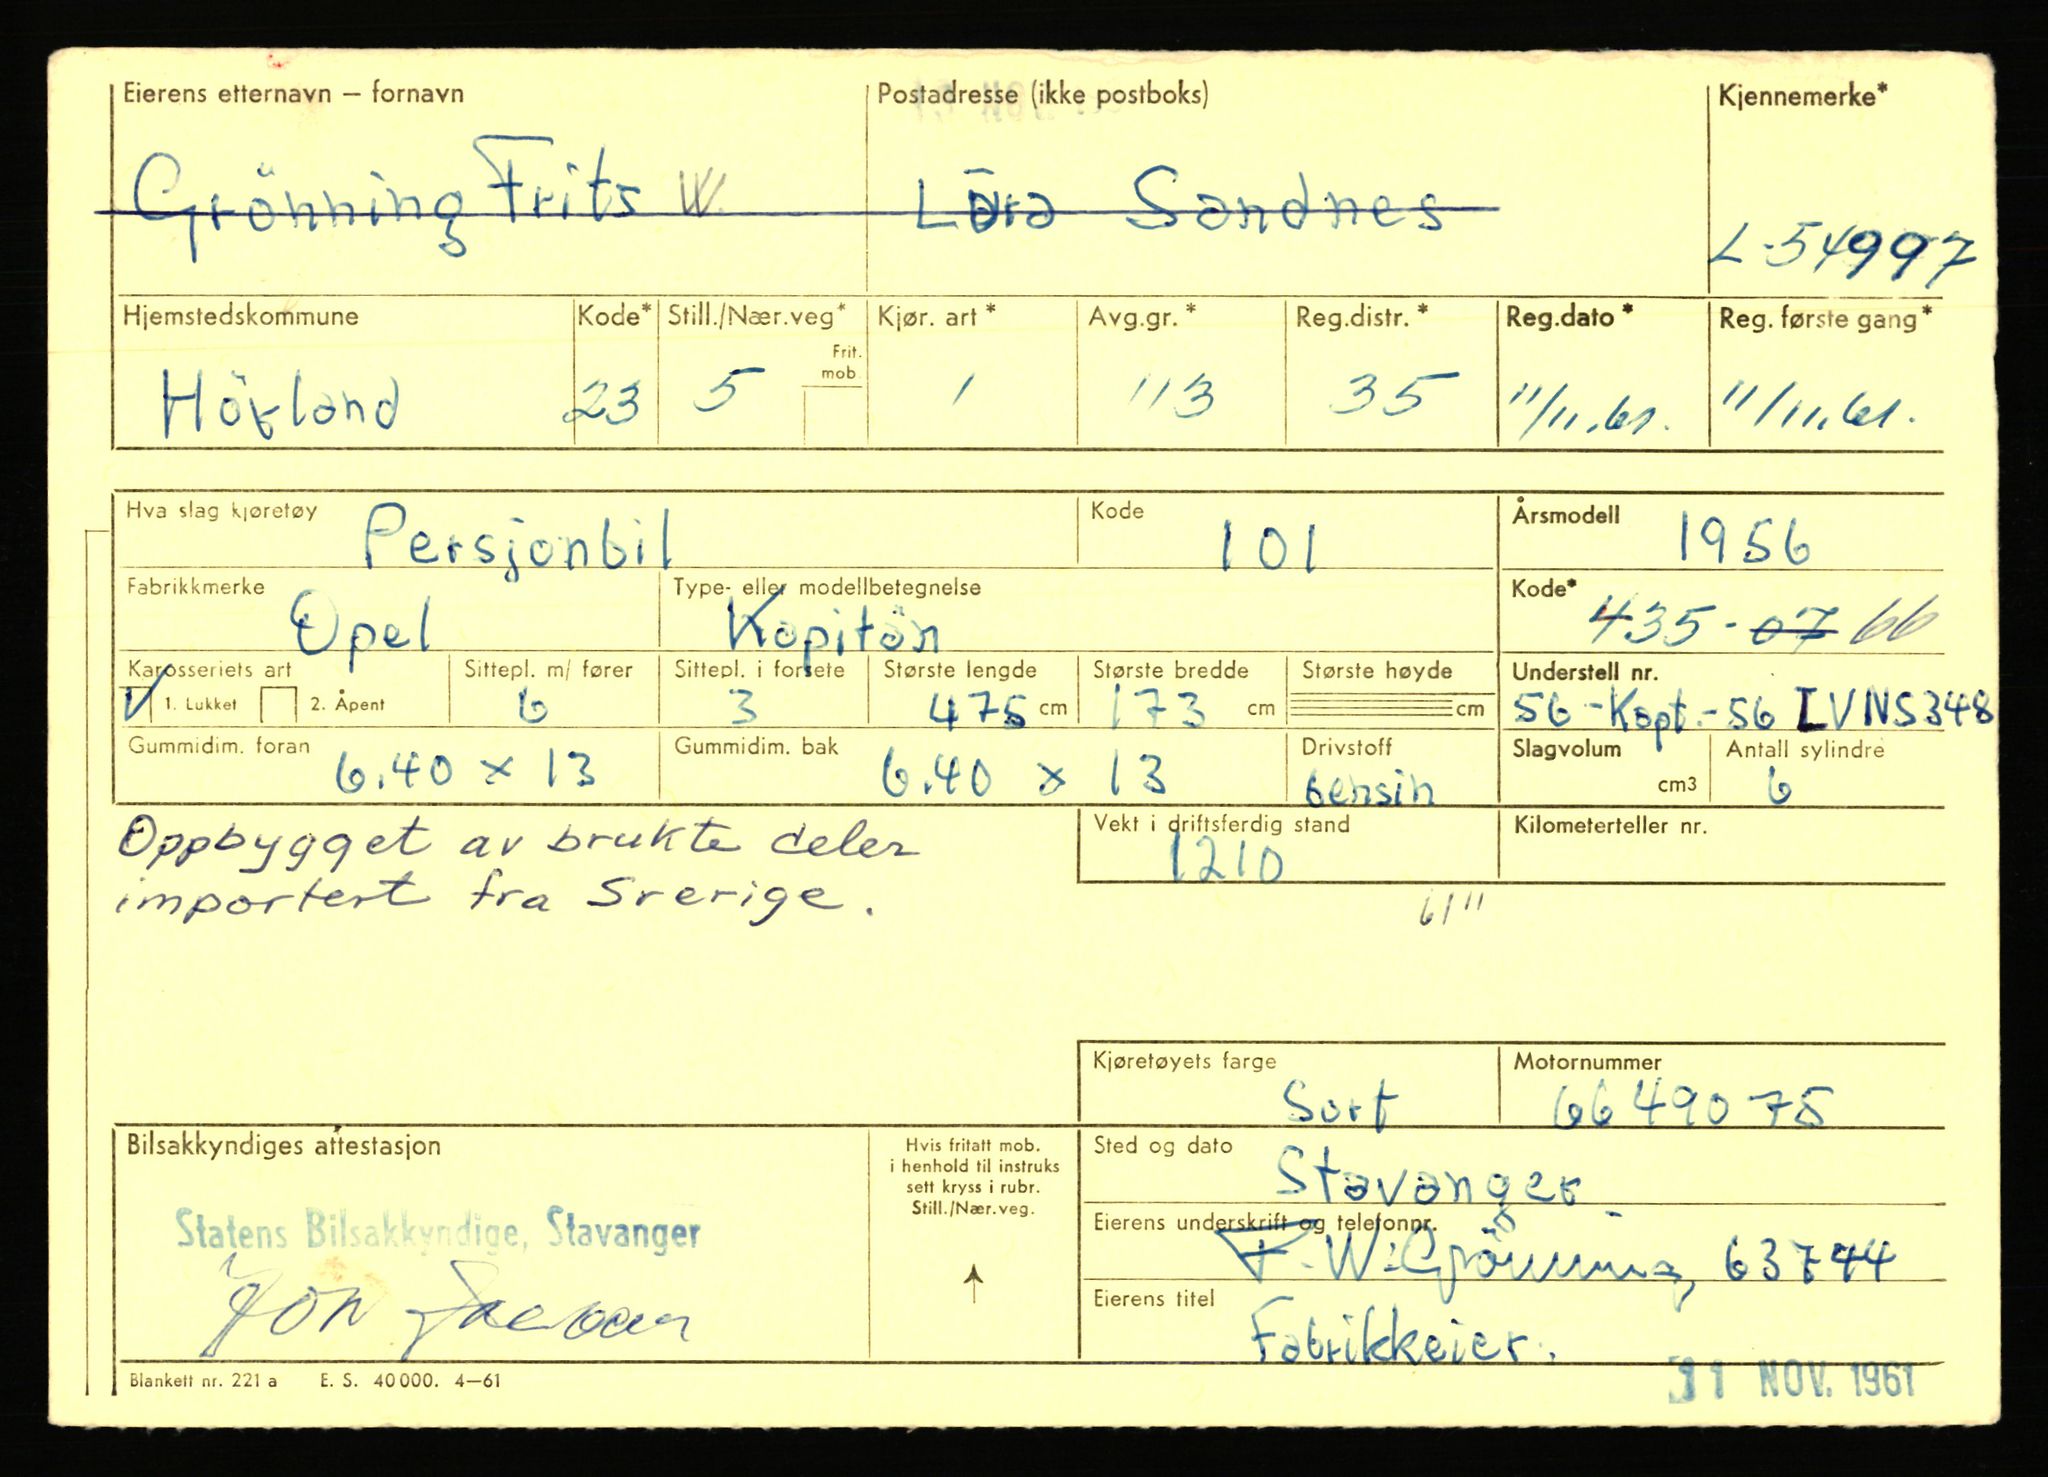 Eierens etternavn – fornavn
Postadresse (ikke postboks)
Kjennemerke*
Grönning Frits W.
Lura Sandnes
L-54997
Hjemstedskommune
Kode*
Still./Nær.veg*
Frit. mob.
Kjør. art*
Avg.gr.*
Reg.distr.*
Reg.dato*
Reg. første gang*
Höyland
23
5
1
113
35
11/11.61.
11/11.61.
Hva slag kjøretøy
Persjonbil
Kode
101
Årsmodell
1956
Fabrikkmerke
Opel
Type- eller modellbetegnelse
Kapitän
Kode*
435-07 66
Karosseriets art
V 1. Lukket 2. Åpent
Sittepl. m/ fører
6
Sittepl. i forsete
3
Største lengde
475 cm
Største bredde
173 cm
Største høyde
cm
Understell nr.
56-Kapt.-56 LVNS348
Gummidim. foran
6.40 x 13
Gummidim. bak
6.40 x 13
Drivstoff
bensin
Slagvolum
cm3
Antall sylindre
6
Oppbygget av brukte deler
importert fra Sverige.
Vekt i driftsferdig stand
1210
Kilometerteller nr.
61"
Kjøretøyets farge
Sort
Motornummer
6649075
Bilsakkyndiges attestasjon
Statens Bilsakkyndige, Stavanger
Hvis fritatt mob.
i henhold til instruks
sett kryss i rubr.
Still./Nær.veg.
Sted og dato
Stavanger
Eierens underskrift og telefonnr.
F. W. Grönning, 63744
Eierens titel
Fabrikkeier.
Blankett nr. 221 a E. S. 40 000. 4–61
11 NOV. 1961